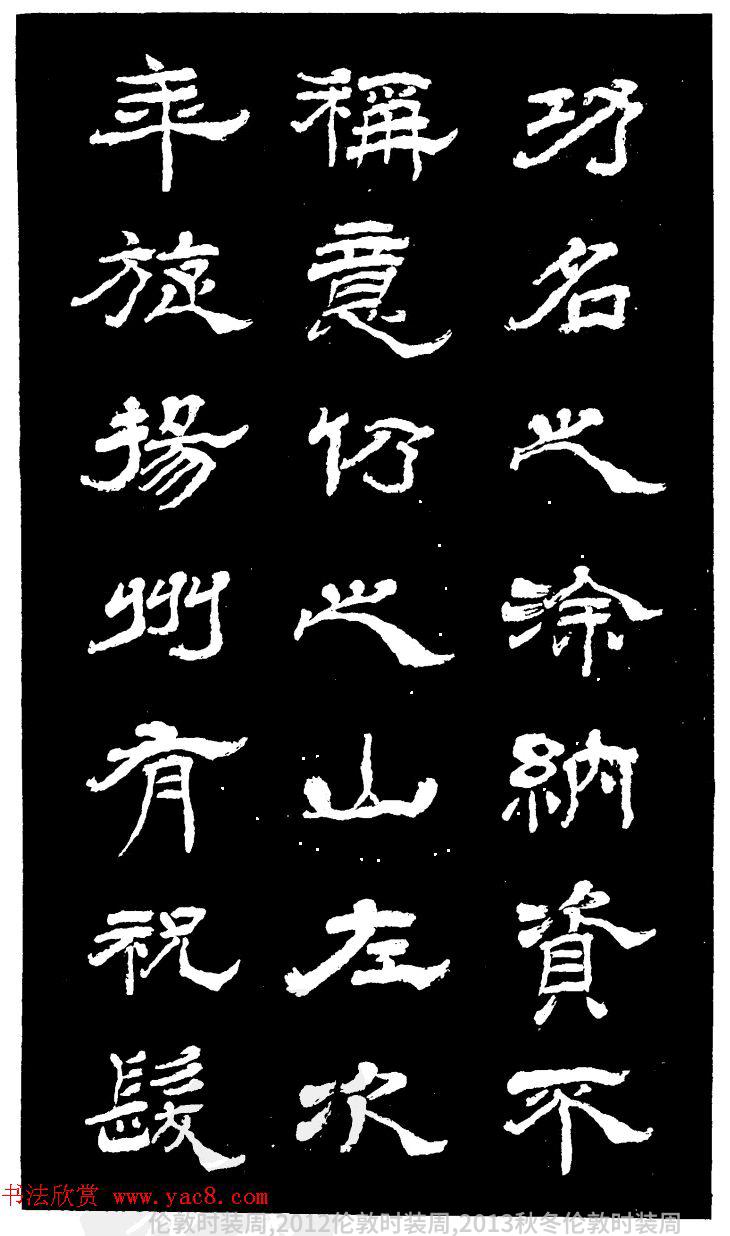 功名之涂納資不
稱意仍之山左次
年旋揚州有祝髮
书法欣赏 www.yac8.com
伦敦时装周,2012伦敦时装周,2013秋冬伦敦时装周